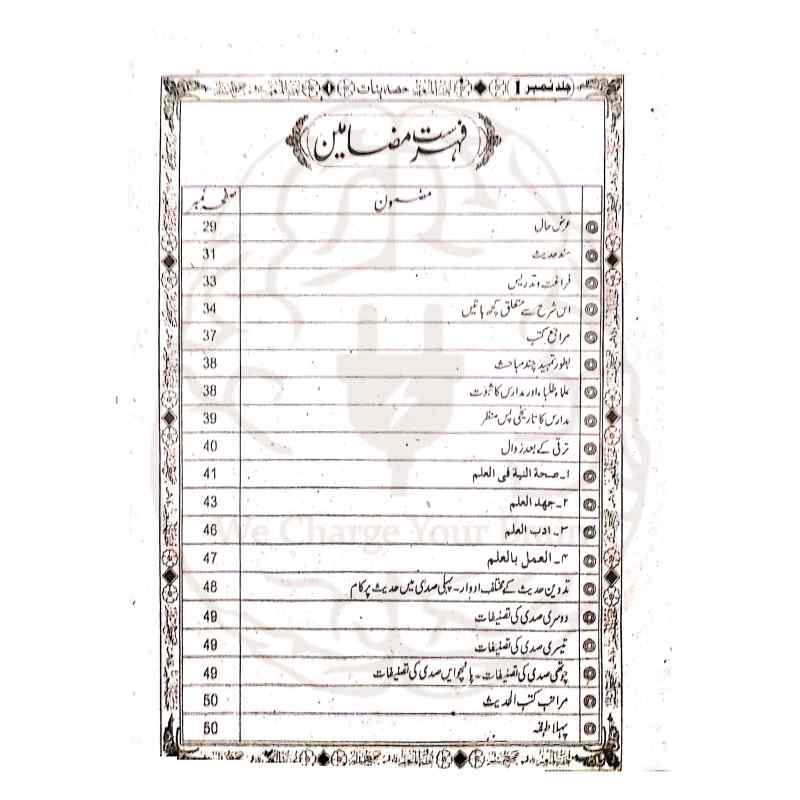 جلد نمبر 1 حصہ بنات
فہرست مضامین
مضمون صفحہ نمبر
عرض حال 29
سند حدیث 31
فراغت وتدریس 33
اس شرح سے متعلق کچھ باتیں 34
مراجع کتب 37
بطور تمہید چند مباحث 38
علماء طلباء اور مدارس کا ثبوت 38
مدارس کا تاریخی پس منظر 39
ترقی کے بعد زوال 40
۱۔ صحة النية فى العلم 41
۲۔ جهد العلم 43
۳۔ ادب العلم 46
۴۔ العمل بالعلم 47
تدوین حدیث کے مختلف ادوار۔ پہلی صدی میں حدیث پر کام 48
دوسری صدی کی تصنیفات 49
تیسری صدی کی تصنیفات 49
چوتھی صدی کی تصنیفات۔ پانچویں صدی کی تصنیفات 49
مراتب کتب الحدیث 50
پہلا طبقہ 50
We Charge Your